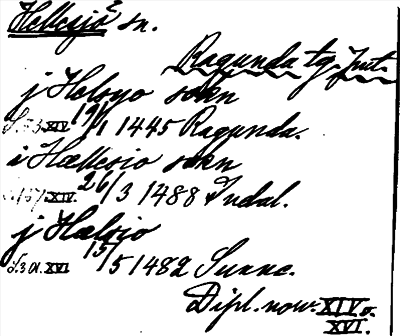 Hellesjö sn.
Ragunda tg. Jmt.
j Helsyo sokn
XIV. 19/1 1445 Ragunda.
i Hællesio sokn
XIV. 26/3 1488 Indal.
j Hælsio
S. 301. XVI. 15/5 1482 Sunne.
Dipl. now. XIV o.
XVI.